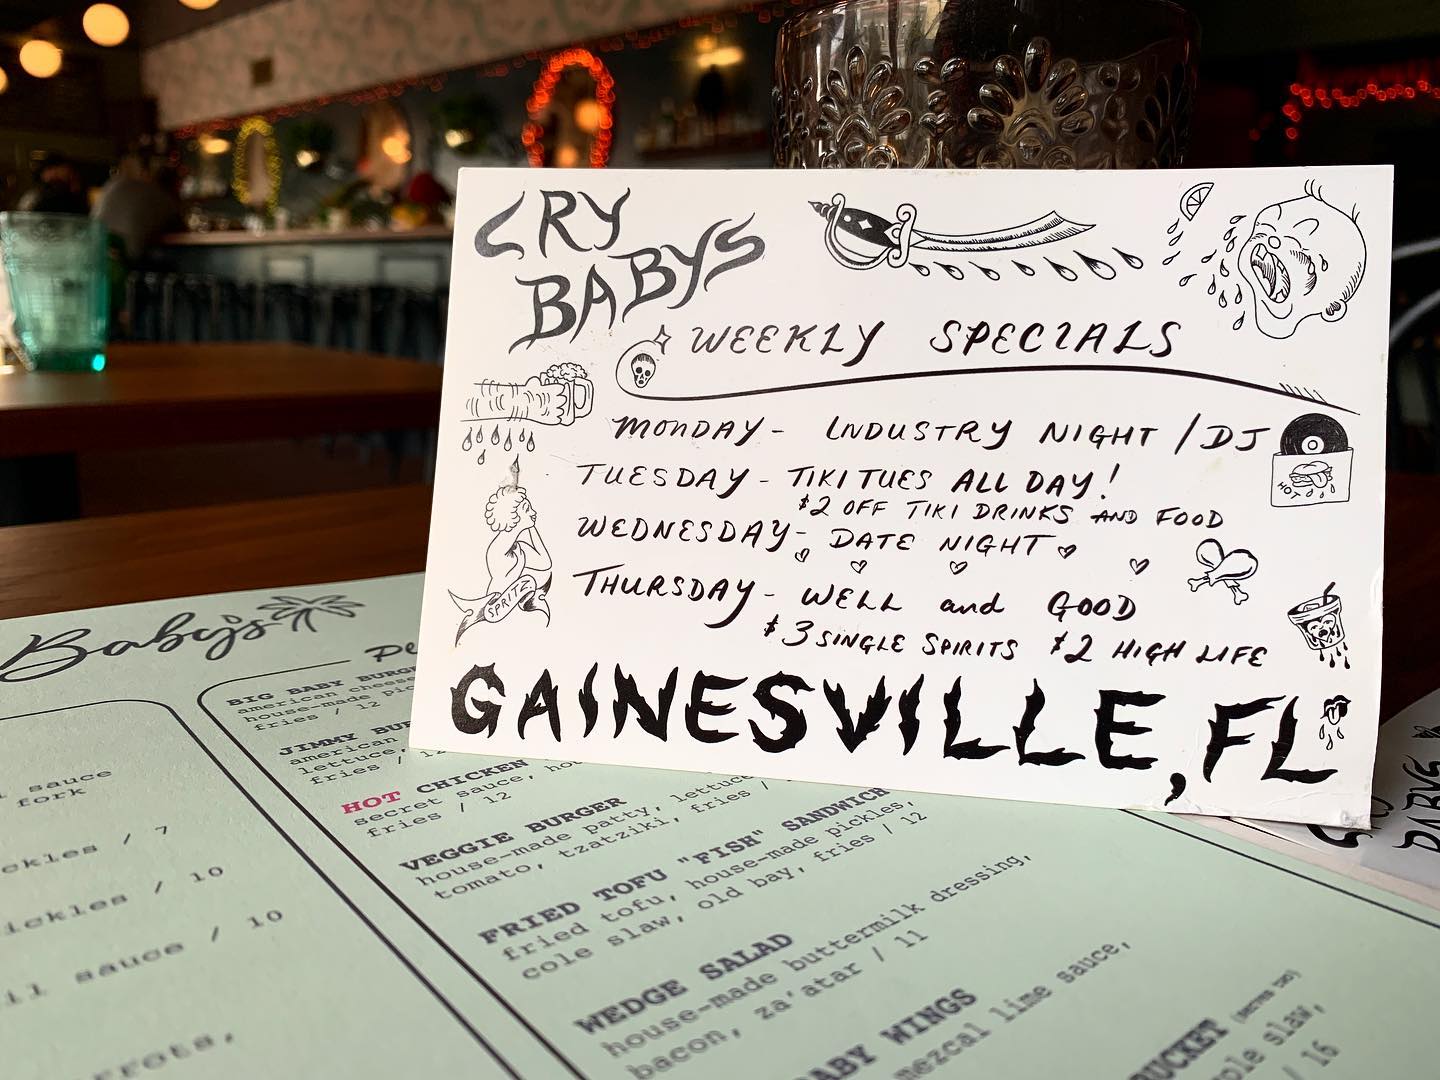 CRY
BABYS
WEEKLY SPECIALS
MONDAY - INDUSTRY NIGHT / DJ
TUESDAY - TIKI TUES ALL DAY!
$2 OFF TIKI DRINKS AND FOOD
WEDNESDAY - DATE NIGHT
THURSDAY - WELL and GOOD
$3 SINGLE SPIRITS $2 HIGH LIFE
GAINESVILLE, FL
HOT
SPRITZ
Baby's
sauce
fork
/ 7
/ 10
sauce / 10
BIG BABY BURGER
american cheese
house-made
fries / 12
JIMMY
american
lettuce,
fries /
HOT CHICKEN
secret sauce,
fries / 12
VEGGIE BURGER
house-made patty, lettuce
tomato, tzatziki, fries /
FRIED TOFU "FISH" SANDWICH
fried tofu, house-made pickles,
cole slaw, old bay, fries / 12
WEDGE SALAD
house-made buttermilk dressing,
bacon, za'atar / 11
BABY WINGS
mezcal lime sauce,
BUCKET
slaw,
/ 16
BABYS